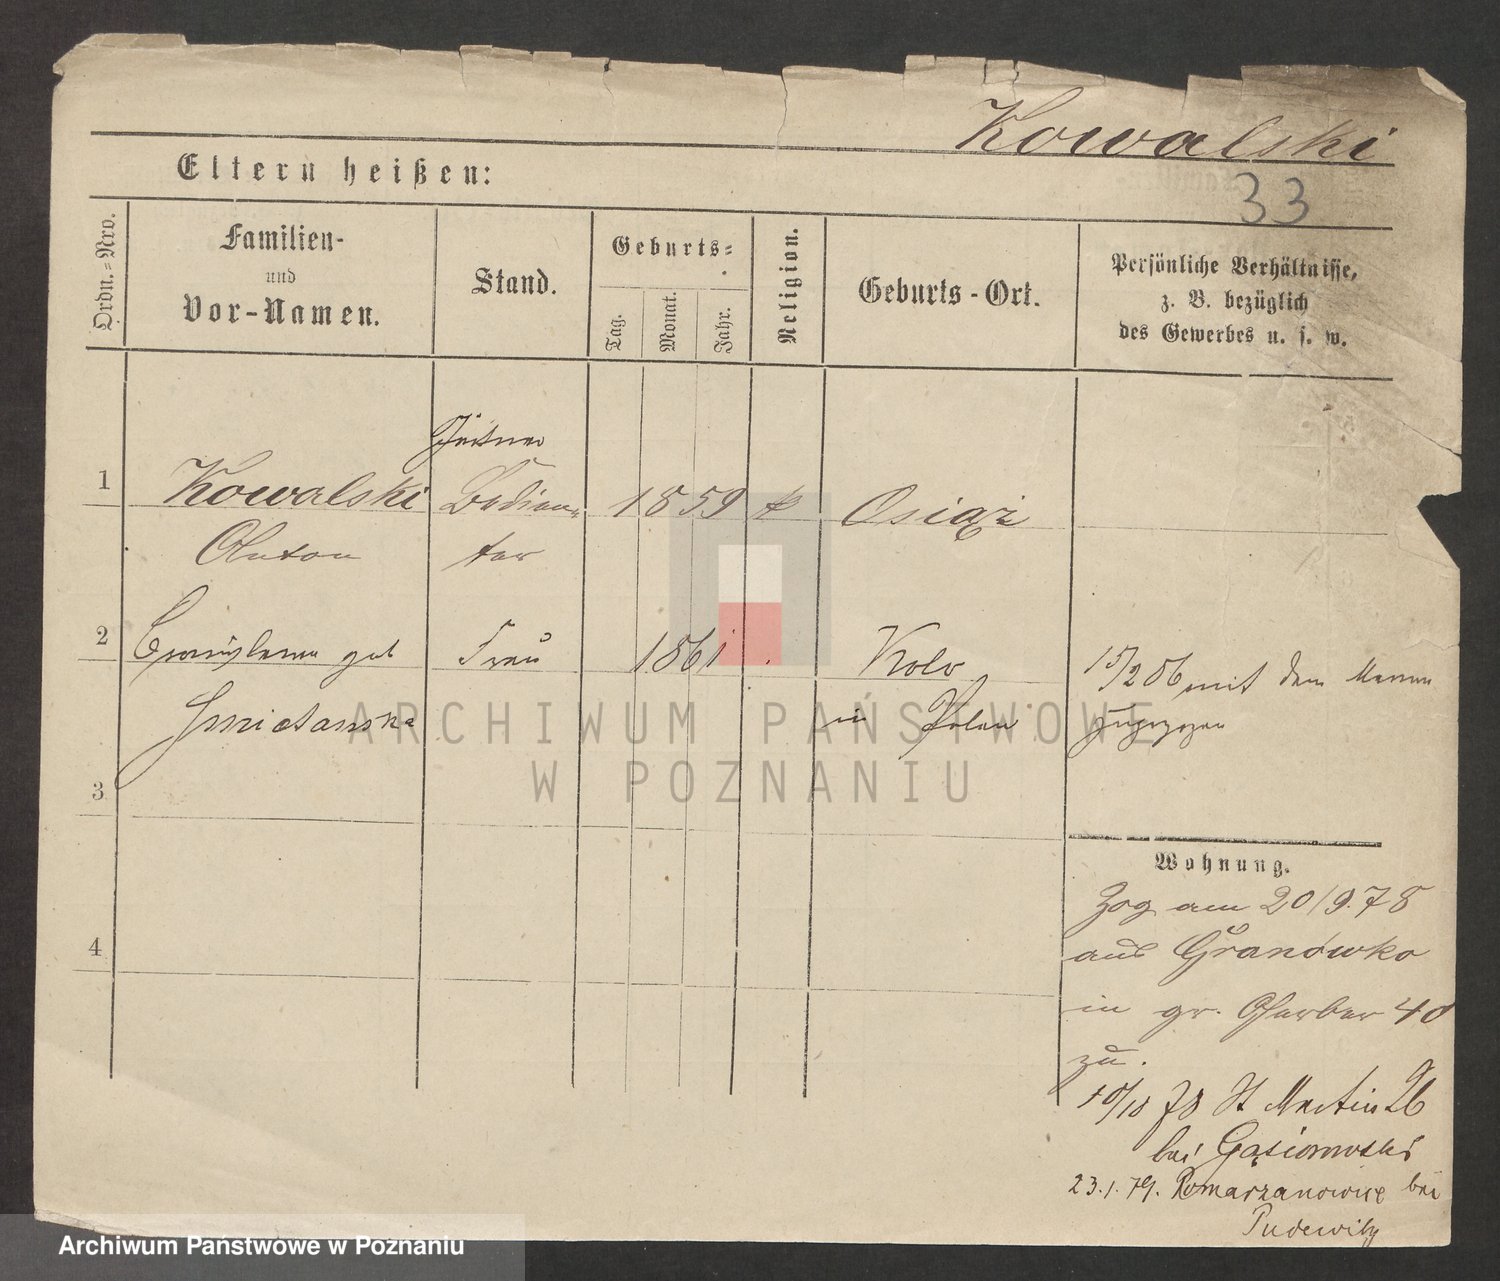 Kowalski
33
Eltern heißen:
Ordn.=Nro.
Familien-
und
Vor-Namen.
Stand.
Geburts=
Tag.
Monat.
Jahr.
Religion.
Geburts-Ort.
Persönliche Verhältnisse,
z. B. bezüglich
des Gewerbes u. s. w.
1
Kowalski
Anton
1859
k
Osiąż
2
geb
Smietanska
Frau
1861
Kolo
in Polen
15/2 86 mit dem Manne
zugezogen
3
Wohnung.
Zog am 20/9.78
aus Granówko
in gr. Gerber 40
zu.
10/10 78 St Martin 26
bei Gąsiorowski
23.1.79. Pomarzanowice bei
Pudewitz
4
ARCHIWUM PAŃSTWOWE
W POZNANIU
Archiwum Państwowe w Poznaniu